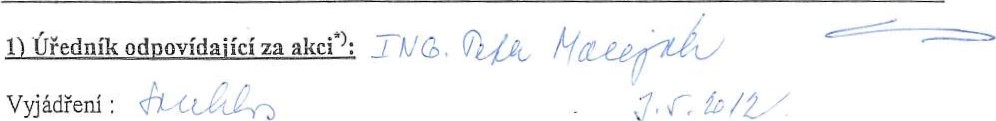 1) Úředník odpovídající za akci*): ING. Petr Maceják
Vyjádření : Souhlas 3.5.2012